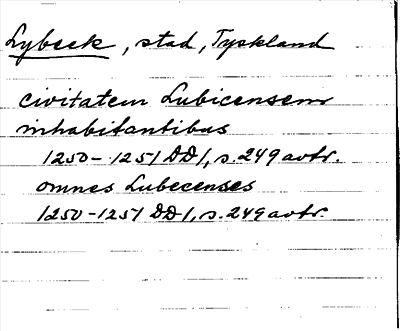 Lybeck, stad, Tyskland
civitatem Lubicensem
inhabitantibus
1250-1251 DD 1, s. 249 avtr.
omnes Lubecenses
1250-1251 DD 1, s. 249 avtr.